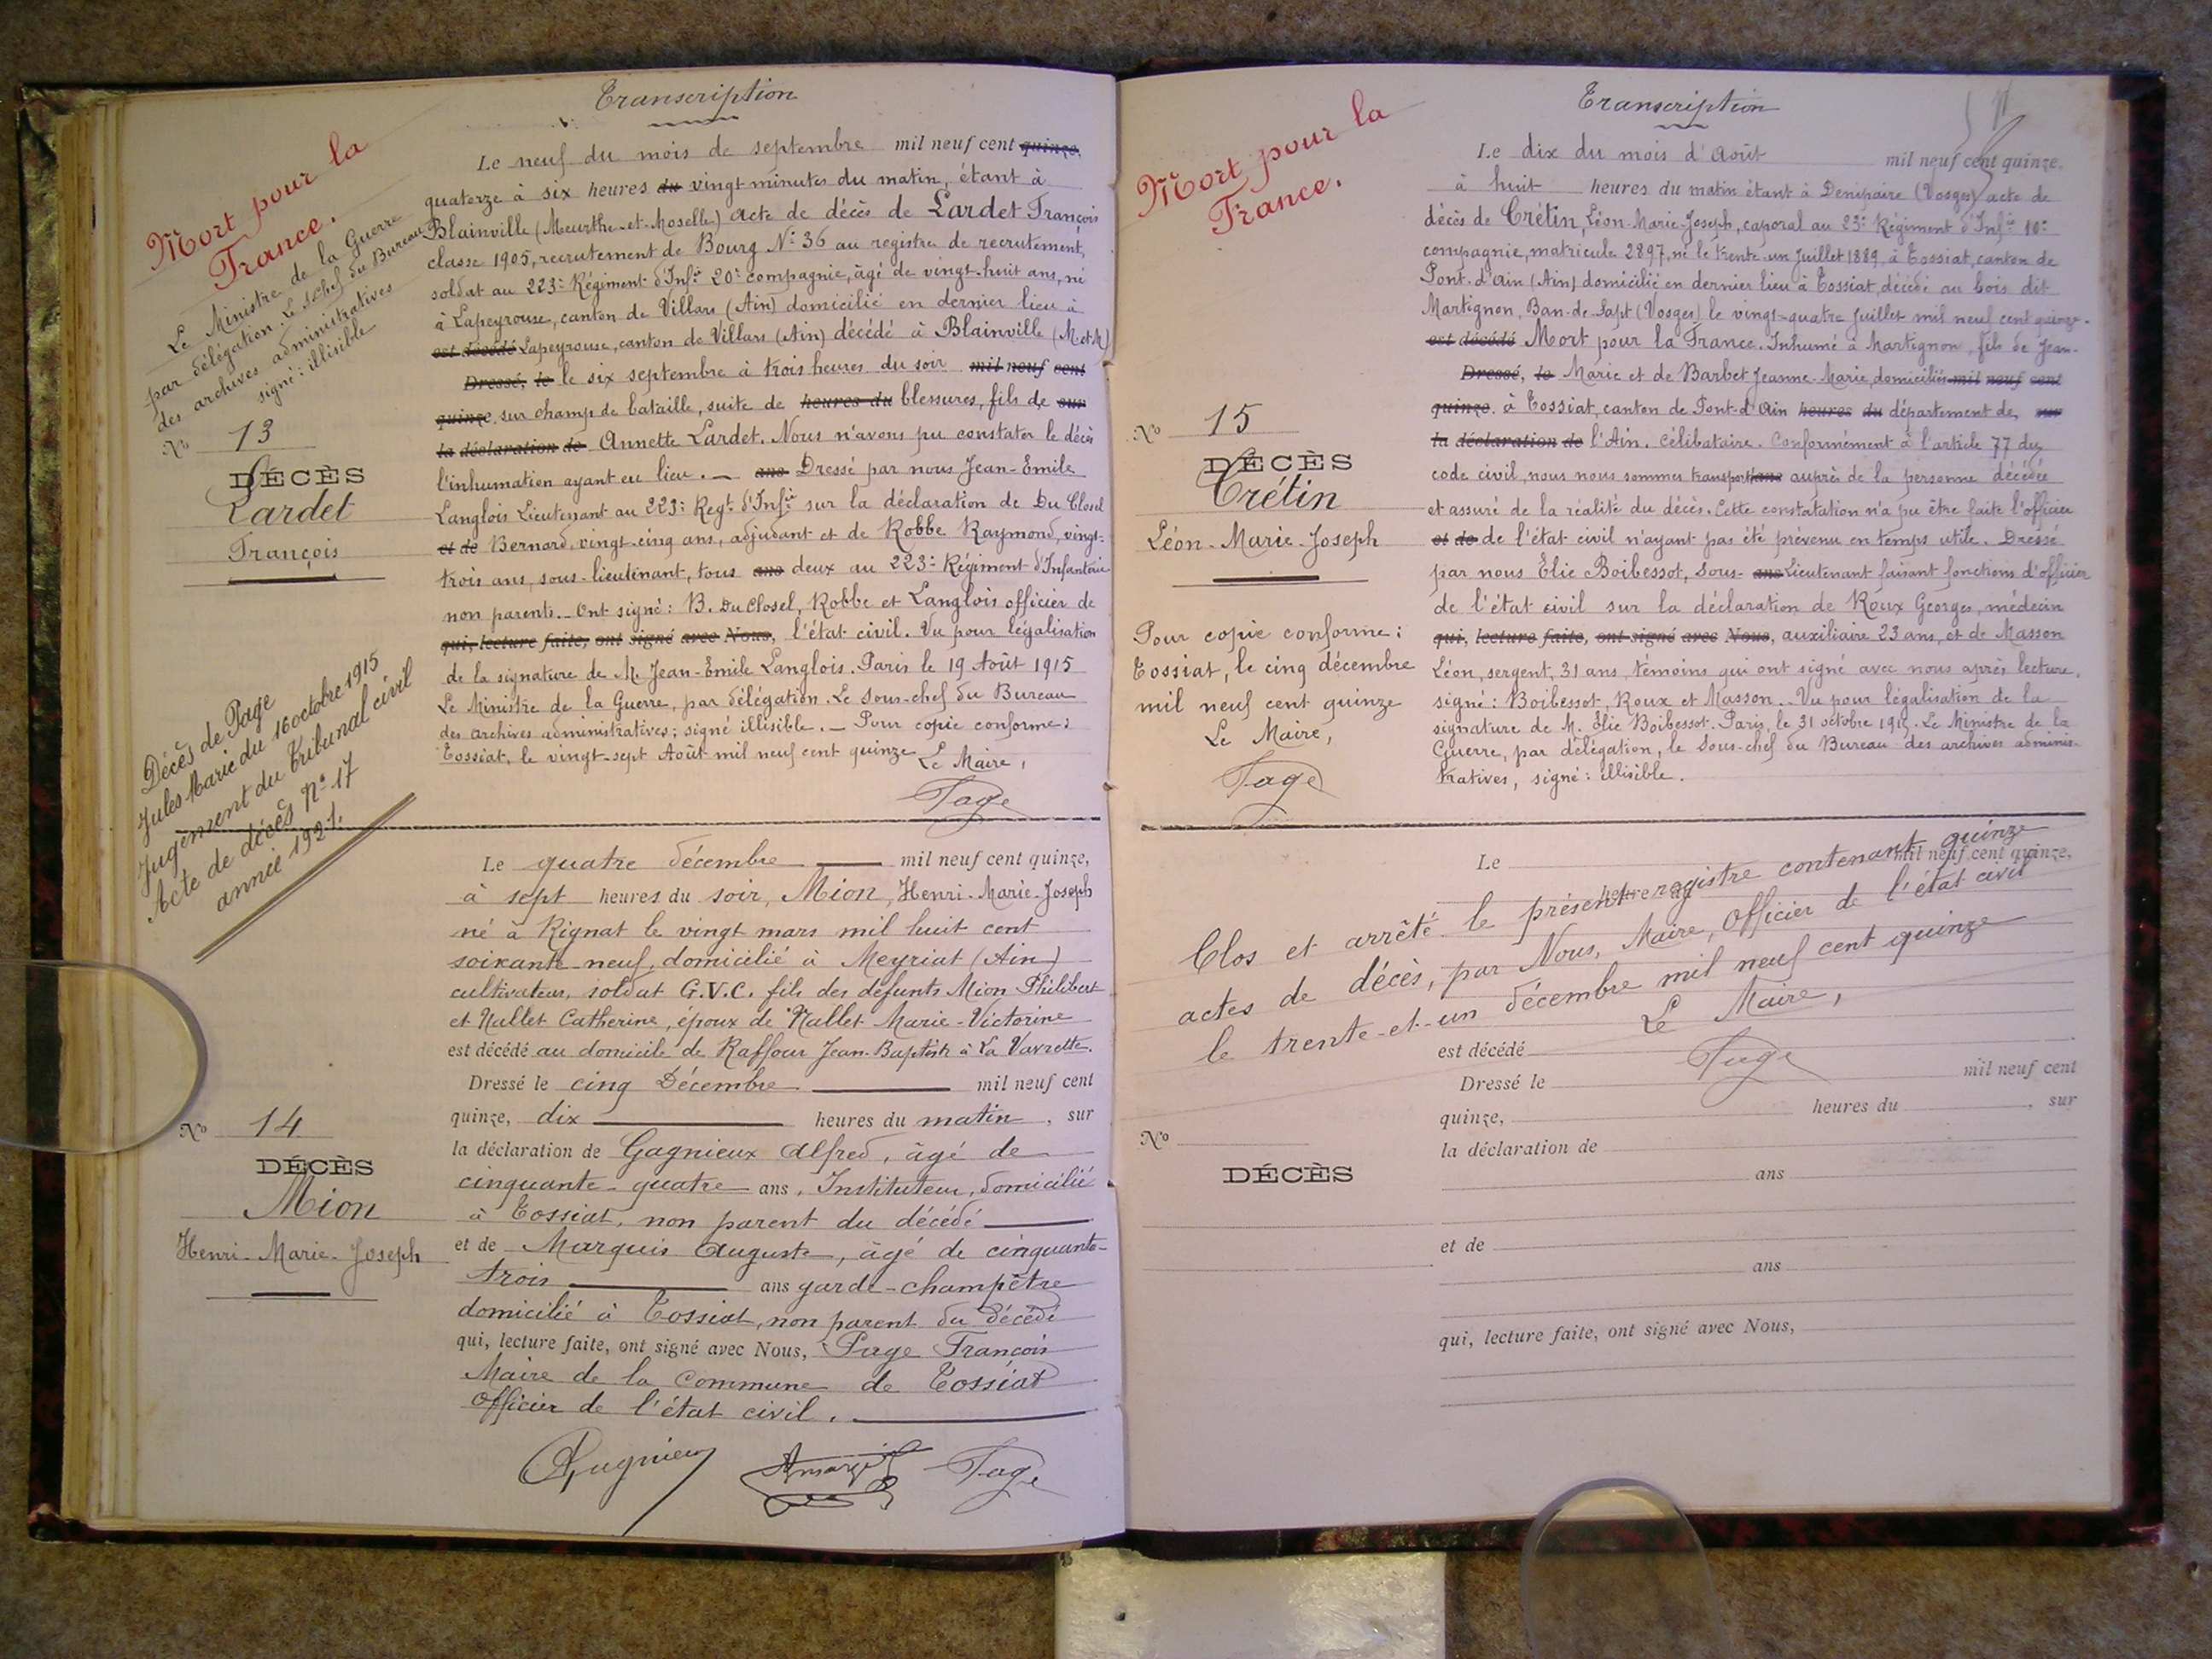 Transcription
Mort pour la
France.
Le Ministre de la Guerre
par délégation. Le s/chef du Bureau
des archives administratives
signé: illisible
No 13
DÉCÈS
Lardet
François
Le neuf du mois de septembre mil neuf cent quinze,
quatorze à six heures du vingt minutes du matin, étant à
Blainville (Meurthe-et-Moselle) acte de décès de Lardet François
classe 1905, recrutement de Bourg No 36 au registre de recrutement,
soldat au 223e Régiment d'Infie 20e compagnie, âgé de vingt-huit ans, né
à Lapeyrouse, canton de Villars (Ain) domicilié en dernier lieu à
est décédé Lapeyrouse, canton de Villars (Ain) décédé à Blainville (M.et.M)
Dressé, le le six septembre à trois heures du soir mil neuf cent
quinze. sur champ de bataille, suite de heures du blessures, fils de sur
la déclaration de Annette Lardet. Nous n'avons pu constater le décès
l'inhumation ayant eu lieu. — ans Dressé par nous Jean-Emile
Langlois Lieutenant au 223e Regt d'Infie sur la déclaration de Du Closel
et de Bernard, vingt-cinq ans, adjudant et de Robbe Raymond, vingt-
trois ans, sous-lieutenant, tous ans deux au 223e Régiment d'Infanterie
non parents. - Ont signé: B. Du Closel, Robbe et Langlois officier de
qui, lecture faite, ont signé avec Nous, l'état civil. Vu pour légalisation
de la signature de M. Jean-Emile Langlois. Paris le 19 Août 1915
Le Ministre de la Guerre, par délégation. Le sous-chef du Bureau
des archives administratives; signé illisible. — Pour copie conforme:
Tossiat, le vingt-sept Août mil neuf cent quinze Le Maire,
Page
Décès de Page
Jules Marie du 16 octobre 1915
Jugement du Tribunal civil
Acte de décès No 17
année 1921.
No 14
DÉCÈS
Mion
Henri-Marie-Joseph
Le quatre décembre mil neuf cent quinze,
à sept heures du soir, Mion, Henri-Marie-Joseph
né à Rignat le vingt mars mil huit cent
soixante neuf, domicilié à Meyriat (Ain)
cultivateur, soldat G.V.C. fils des défunts Mion Philibert
et Nallet Catherine, époux de Nallet Marie-Victorine
est décédé au domicile de Raffour Jean-Baptiste à La Vavrette.
Dressé le cinq Décembre mil neuf cent
quinze, dix heures du matin, sur
la déclaration de Gagnieux Alfred, âgé de
cinquante-quatre ans, Instituteur, domicilié
à Tossiat, non parent du décédé
et de Marquis Auguste, âgé de cinquante-
trois ans garde-champêtre
domicilié à Tossiat, non parent du décédé
qui, lecture faite, ont signé avec Nous, Page François
Maire de la Commune de Tossiat
Officier de l'état civil.
Page
Transcription
Mort pour la
France.
No 15
DÉCÈS
Crétin
Léon-Marie-Joseph
Pour copie conforme:
Tossiat, le cinq décembre
mil neuf cent quinze
Le Maire,
Page
Le dix du mois d'Août mil neuf cent quinze.
à huit heures du matin étant à Denipaire (Vosges) acte de
décès de Crétin, Léon-Marie-Joseph, caporal au 23e Régiment d'Infie 10e
compagnie, matricule 2897, né le trente-un Juillet 1889, à Tossiat, canton de
Pont-d'Ain (Ain) domicilié en dernier lieu à Tossiat, décédé au bois dit
Martignon, Ban-de-Sapt (Vosges) le vingt-quatre Juillet mil neuf cent quinze.
est décédé Mort pour la France. Inhumé à Martignon, fils de Jean-
Dressé, le Marie et de Barbet Jeanne-Marie, domiciliés mil neuf cent
quinze. à Tossiat, canton de Pont-d'Ain heures du département de, sur
la déclaration de l'Ain. Célibataire. Conformément à l'article 77 du
code civil, nous nous sommes transporté ans auprès de la personne décédée
et assuré de la réalité du décès. Cette constatation n'a pu être faite l'officier
et de de l'état civil n'ayant pas été prévenu en temps utile. Dressé
par nous Elie Boibessot, Sous- ans Lieutenant faisant fonctions d'officier
de l'état civil sur la déclaration de Roux Georges, médecin
qui, lecture faite, ont signé avec Nous, auxiliaire 23 ans, et de Masson
Léon, sergent, 31 ans, témoins qui ont signé avec nous après lecture.
signé: Boibessot, Roux et Masson. - Vu pour légalisation de la
signature de M. Elie Boibessot. Paris, le 31 octobre 1915. Le Ministre de la
Guerre, par délégation, le Sous-chef du Bureau des archives adminis-
tratives, signé: illisible.
Le mil neuf cent quinze,
heures du
Clos et arrêté le présent registre contenant quinze
actes de décès, par Nous, Maire, Officier de l'état civil
le trente-et-un décembre mil neuf cent quinze
Le Maire,
Page
est décédé
Dressé le mil neuf cent
quinze, heures du , sur
No
DÉCÈS
la déclaration de
ans
et de
ans
qui, lecture faite, ont signé avec Nous,